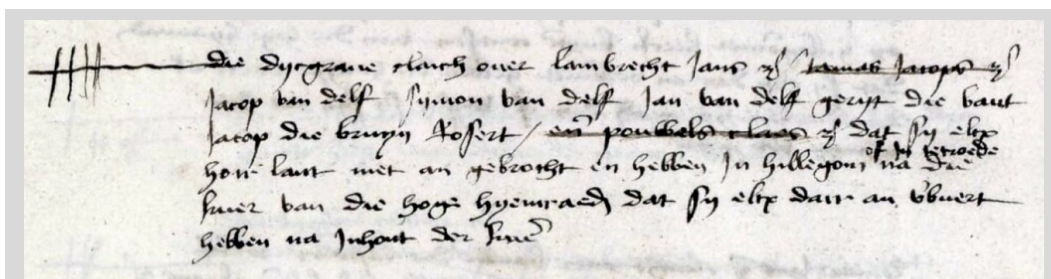 die dijcgrave claich over lambrecht Jans zo tamas Jacops zo
Jacop van delf Sijmon van delf Jan van delf gerijt die bant
Jacop die bruijn Rosert / en pouwels claes zo dat sij elcx
of In tetroede
hore lant niet an gebrocht en hebben In hillegom na die
kuer van die hoge hyemraed dat sij elcx dair an verbuert
hebben na Inhout der kuere